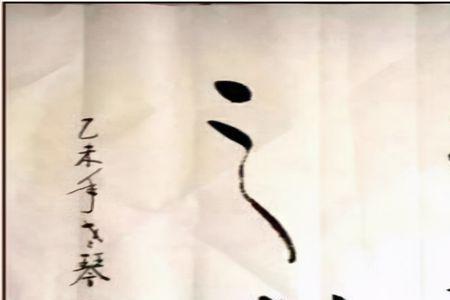 之
乙未年琴